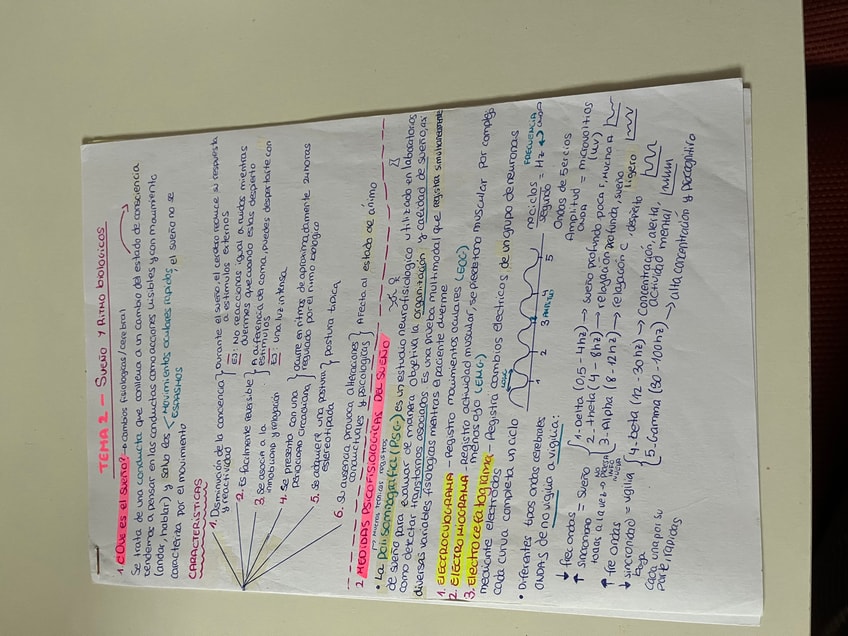 TEMA 2 - SUEÑO Y RITMO BIOLÓGICOS
1. ¿Qué es el sueño? + cambios fisiológicos (cerebral)
Se trata de una conducta que conlleva a un cambio del estado de consciencia
tendemos a pensar en las conductas como acciones visibles y con movimiento
(andar, hablar) y salvo los < Movimientos oculares rápidos, el sueño no se
ESPASMOS
caracteriza por el movimiento
CARACTERÍSTICAS
1. Disminución de la conciencia y reactividad } Durante el sueño, el cerebro reduce su respuesta
a estímulos externos
EJ: No reaccionas igual a ruidos mientras
duermes que cuando estás despierto
2. Es fácilmente reversible } A diferencia del coma, puedes despertarte con
estímulos
EJ: una luz intensa
3. Se asocia a la
inmovilidad y relajación
4. Se presenta con una
periocidad circadiana } ocurre en ritmos de aproximadamente 24 horas
regulado por el ritmo biológico
5. Se adquiere una postura
estereotipada } postura típica
6. Su ausencia provoca alteraciones
conductuales y psicológicas } Afecta al estado de ánimo
2. MEDIDAS PSICOFISIOLÓGICAS DEL SUEÑO
• La Polisomnografía (PSG) es un estudio neurofisiológico utilizado en laboratorios
de sueño para evaluar de manera objetiva la organización y calidad de sueño, así
como detectar trastornos asociados. Es una prueba multimodal que registra simultáneamente
diversas variables fisiológicas mientras el paciente duerme
1. ELECTROCULOGRAMA - Registro movimientos oculares (EOG)
2. ELECTROMIOGRAMA - Registro actividad muscular, se pierde tono muscular por completo
menos ojo (EMG)
3. Electroencefalograma - Registra cambios eléctricos de un grupo de neuronas
mediante electrodos
cada curva completa un ciclo
1 2 3 4 5
nº ciclos
segundo = Hz ↔
FRECUENCIA
ONDA
Ondas de 5 ciclos
Amplitud = microvoltios
ONDA (uv)
• Diferentes tipos ondas cerebrales
ONDAS de no vigilia a vigilia:
↓ frec ondas
↑ sincronía = sueño
todas a la vez
1. Delta (0,5 - 4hz) → sueño profundo poca F, mucha A
2. Theta (4 - 8hz) → relajación profunda, sueño ligero
3. Alpha (8 - 12hz) → relajación C, despierto
↑ fre ondas
↓ sincronía = vigilia
baja
Cada una por su
parte, rápidas
4. beta (12 - 30hz) → Concentración, alerta,
actividad mental,
5. Gamma (30 - 100hz) → alta concentración y